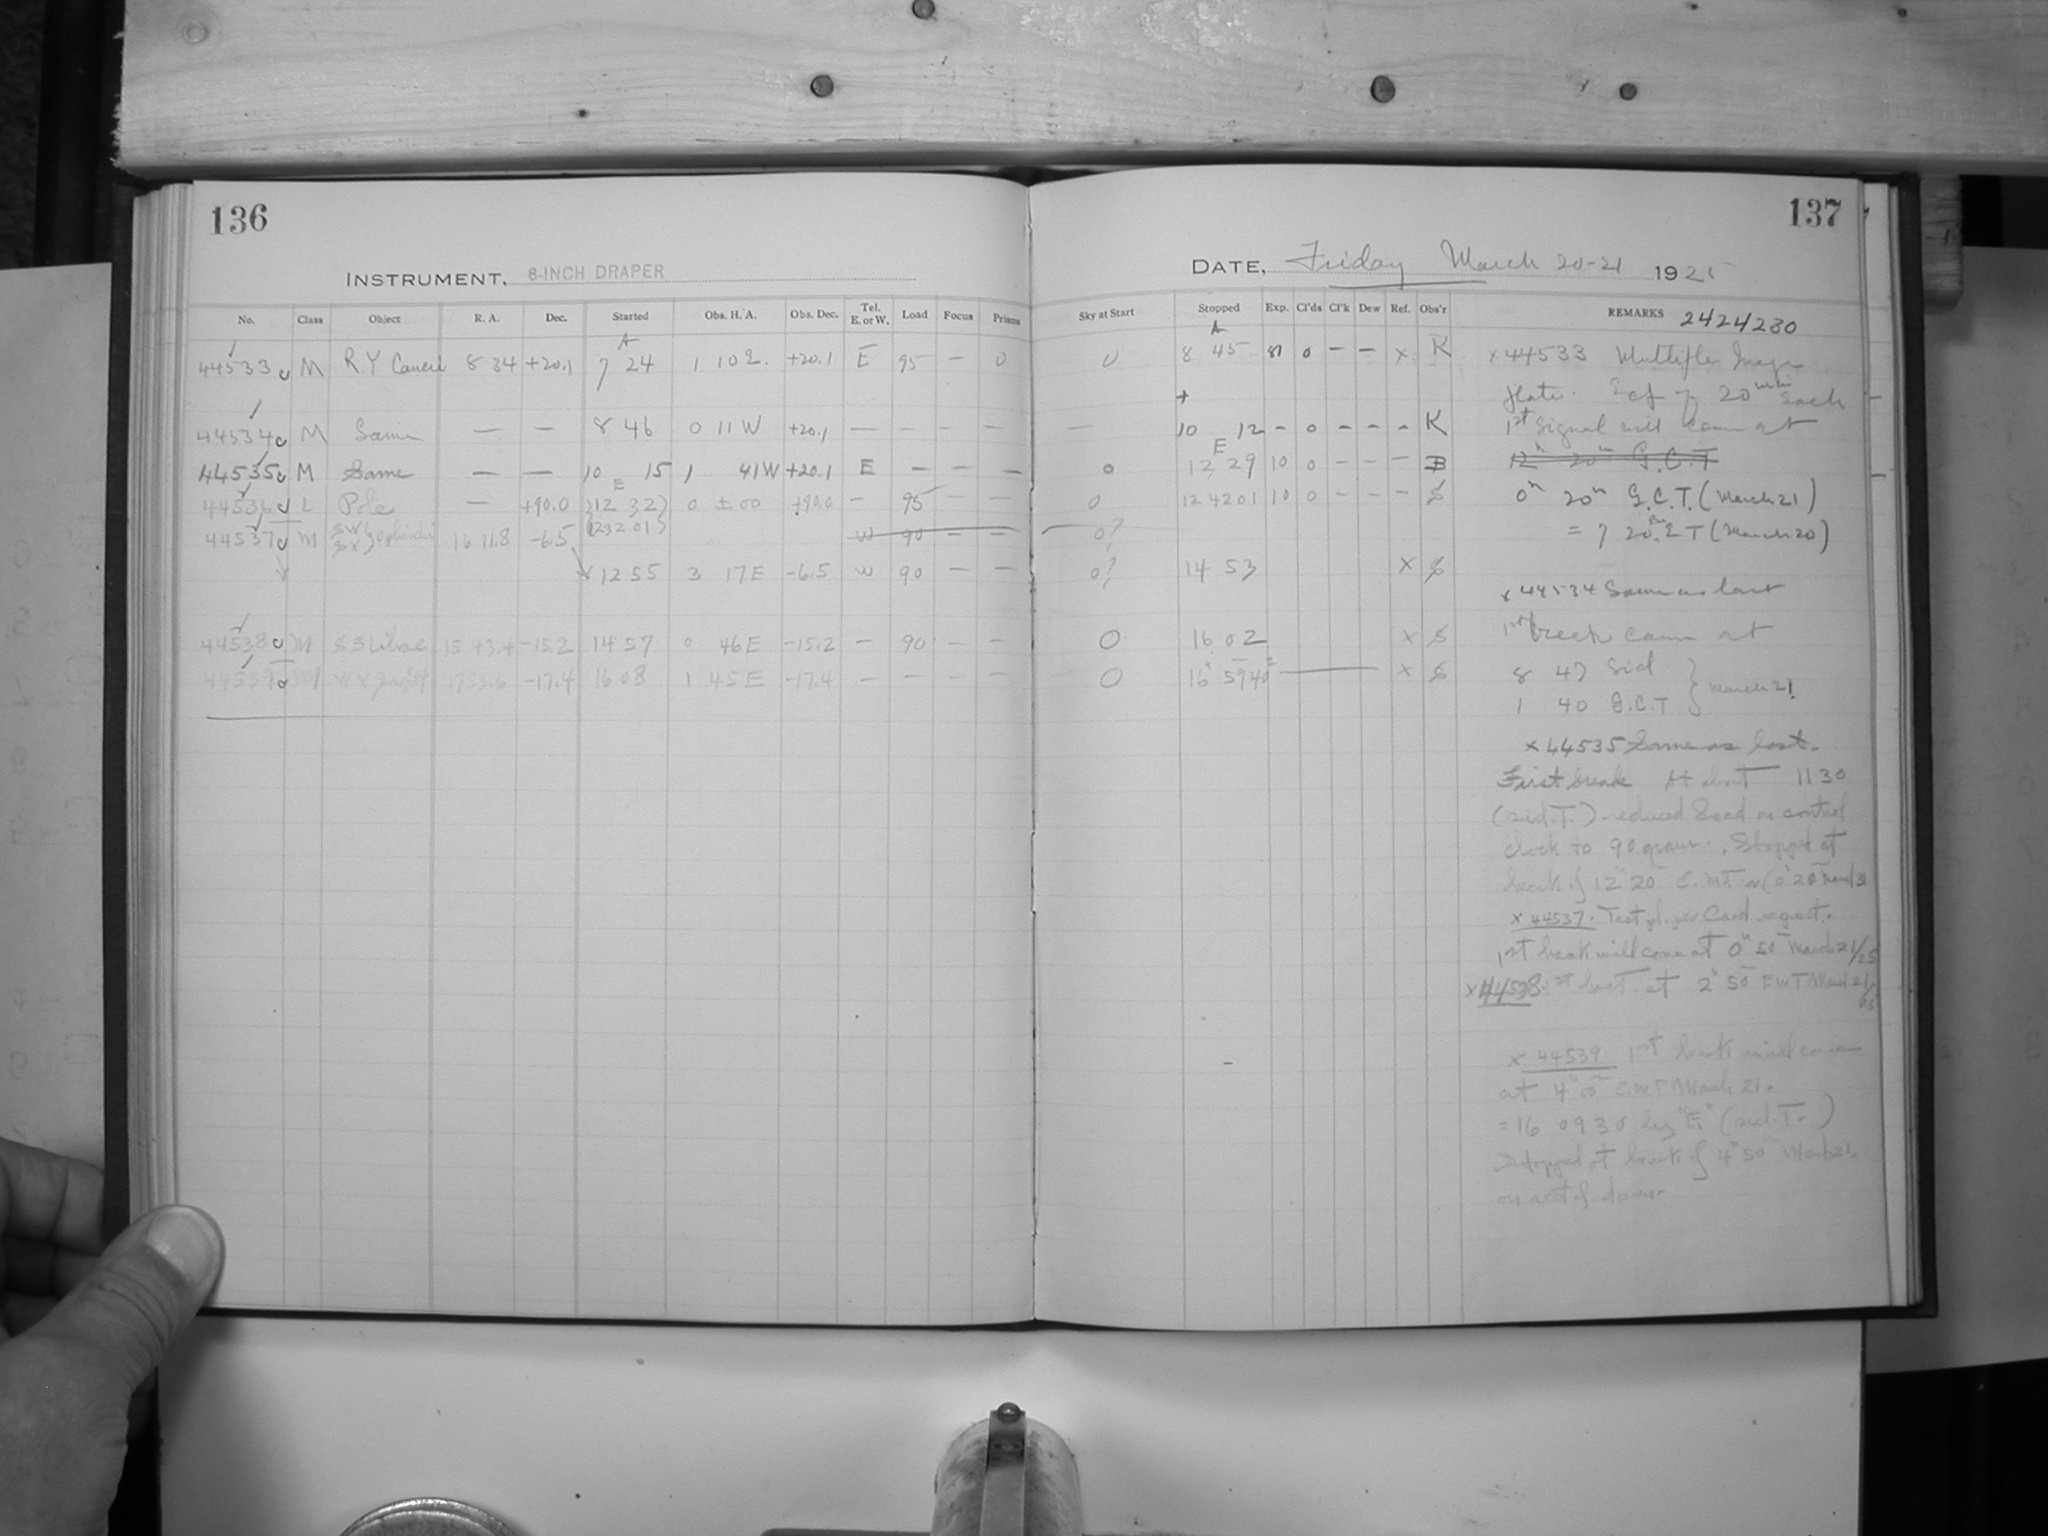 136
INSTRUMENT, 8-INCH DRAPER
No. Class Object R. A. Dec. Started Obs. H. A. Obs. Dec. Tel. E. or W. Load Focus Prisms
A
44533 M R Y Cancri 8 34 +20.1 7 24 1 10 E. +20.1 E 95 — 0
44534 M Same — — 8 46 0 11 W +20.1 — — — —
44535 M Same — — 10 15 1 41 W +20.1 E — — —
E
44536 L Pole — +90.0 12 32 0 ±00 +90.0 — 95 — —
(12 32 01)
44537 M SW SX Ophiuchi 16 11.8 -6.5 W 90 — —
12 55 3 17 E -6.5 W 90 — —
44538 M S S Librae 15 43.4 -15.2 14 57 0 46 E -15.2 — 90 — —
44539 M W X Sagitt -17.4 16 08 1 45 E -17.4 — — — —
137
DATE, Friday March 20-21 1925
Sky at Start Stopped Exp. Cl'ds Cl'k Dew Ref. Obs'r REMARKS 2424230
A
0 8 45 81 0 — — x K
+
— 10 12 — 0 — — — K
E
0 12 29 10 0 — — — B
0 12 42 01 10 0 — — — S
0?
0? 14 53 x S
0 16 02 x S
0 16 59 40 x S
x 44533 Multiple Image
plate. Exp of 20 mm Each
1st Signal will come at
12h 20m G.C.T
0h 20m G.C.T. (March 21)
= 7 20 E T (March 20)
x 44534 Same as last
1st break came at
8 47 Sid
1 40 G.C.T } March 21.
x 44535 Same as last.
First break At about 11 30
(sid. T.) reduced load on control
clock to 90 grams. Stopped at
break of 12h 20m
x 44537. Test pl. per Card request.
1st break will come at 0h 50m March 21/25
x 44538 1st break at 2h 50m March 21/25
x 44539 1st break will come
at 4h March 21.
= 16 09 30 by "E" (sid. T.)
Stopped at break of 4h 50m March 21.
on acct of dawn.